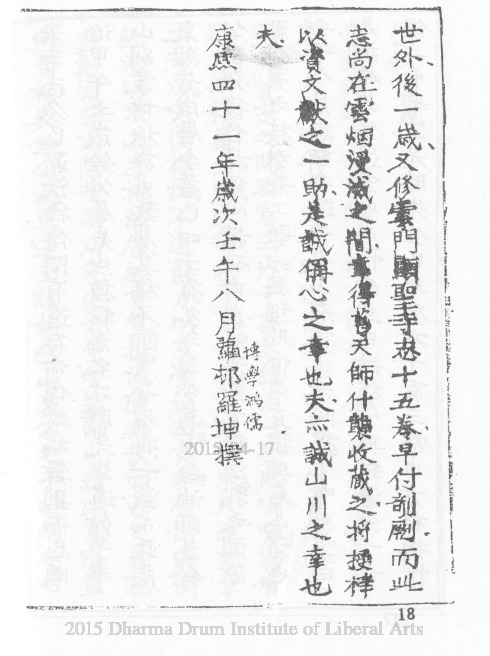 世外後一歲又修雲門顯聖寺志十五卷早付剞劂而此
志尚在雲烟漫滅之間幸得天師什襲收藏之將授梓
以資文獻之一助是誠偶心之幸也夫亦誠山川之幸也
夫
康熙四十一年歲次壬午八月蘿邨羅坤撰
博學鴻儒
18
2015 Dharma Drum Institute of Liberal Arts